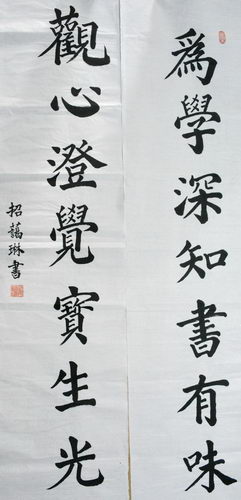 為學深知書有味
觀心澄覺寶生光
招藹琳書